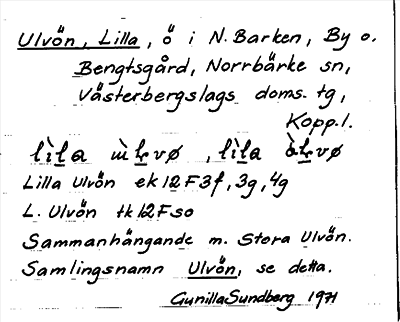 Ulvön, Lilla, ö i N. Barken, By o.
Bengtsgård, Norrbärke sn,
Västerbergslags doms. tg,
Kopp. l.
lìla ùlvø , lìla òlvø
Lilla Ulvön ek 12 F 3f, 3g, 4g
L. Ulvön tk 12 F so
Sammanhängande m. Stora Ulvön.
Samlingsnamn Ulvön, se detta.
Gunilla Sundberg 1971